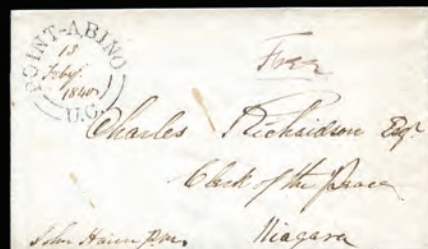 POINT-ABINO
13
Feby.
1840
U.C.
Free
Charles Richardson Esqr
Clerk of the Peace
Niagara
John Haun P.M.